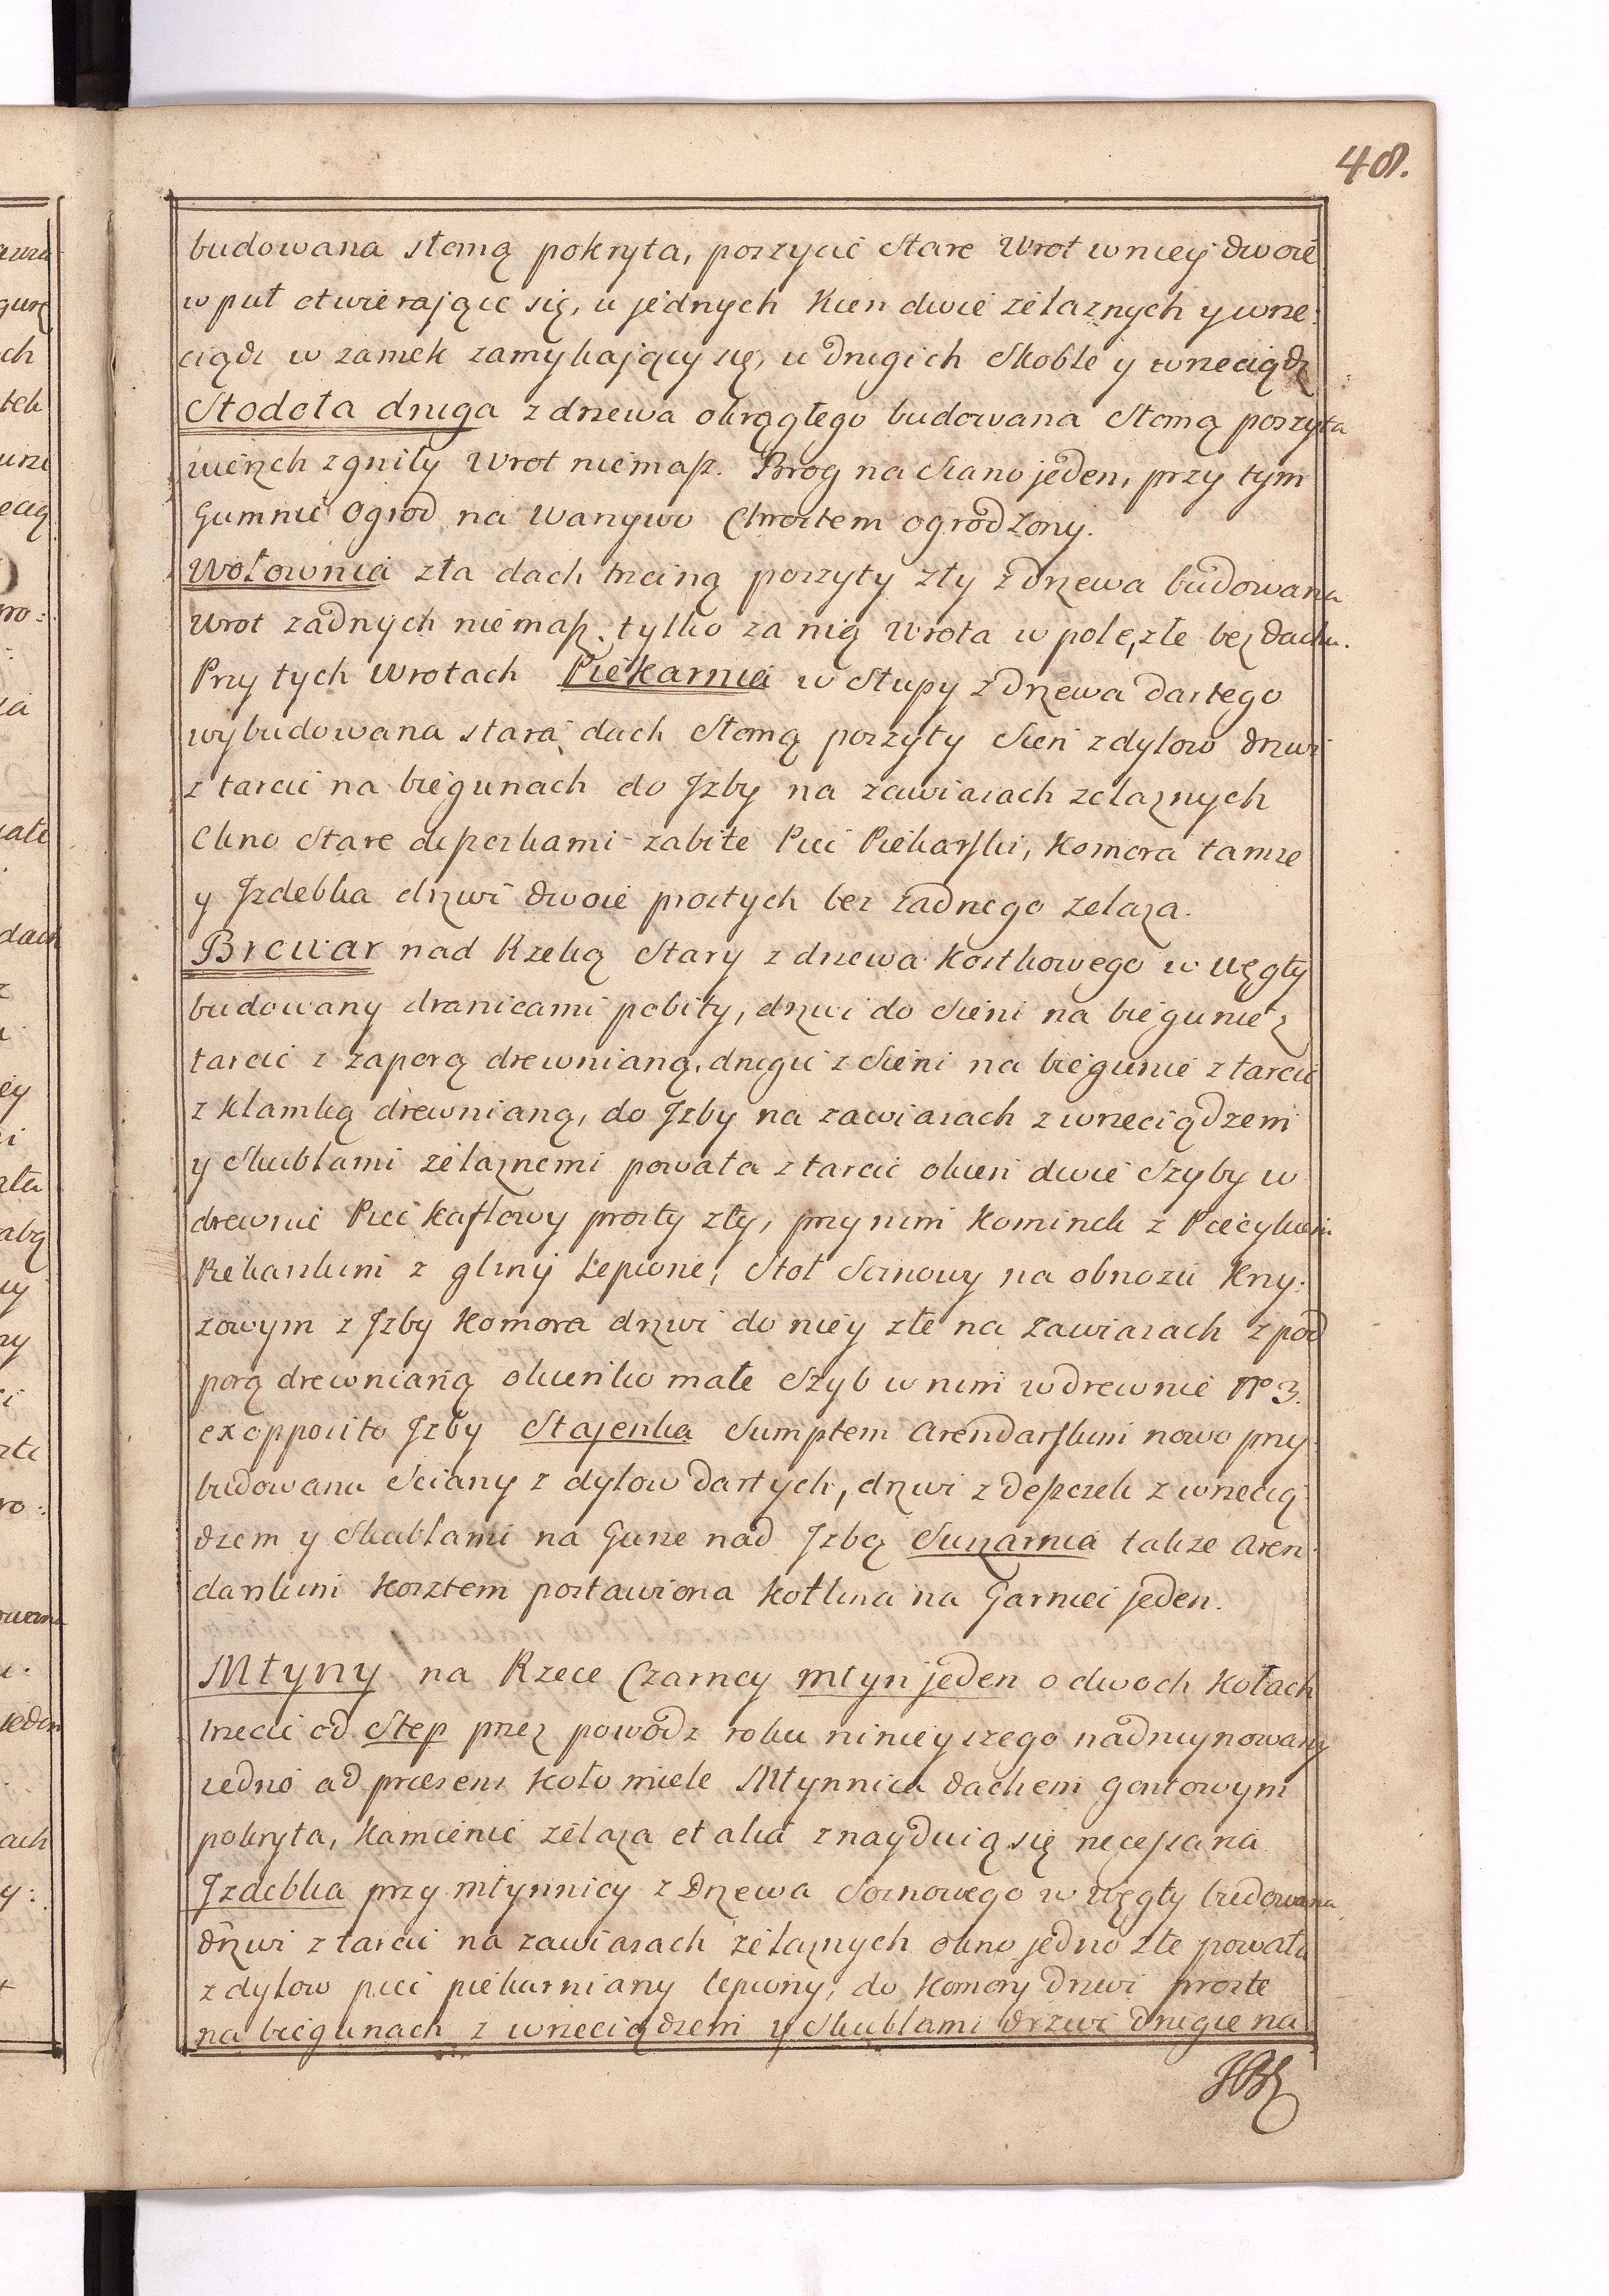 48.
budowana słomą pokryta, poszycie stare Wrot wniey dwoie
w puł otwierające się, u jednych Kun dwie żelaznych y wrze:
ciądz w zamek zamykający się, u drugich Skoble y wrzeciądz
Stodoła druga z drzewa okrągłego budowana Słomą poszyta
wierzch zgniły Wrot niemasz. Brog na Siano jeden, przy tym
Gumnie Ogrod na Warzywo Chrostem ogrodzony.
Wołownia zła dach trzciną poszyty zły z drzewa budowana
Wrot żadnych niemasz, tylko za nią Wrota w pole, złe bez dachu.
Przy tych Wrotach Piekarnia w Słupy z drzewa dartego
wybudowana stara, dach Słomą poszyty Sień z dylow drzwi
z tarcic na biegunach do Jzby na zawiasach żelaznych
Okno Stare deszczkami zabite Piec Piekarski, Komora tamże
y Jzdebka drzwi dwoie prostych bez żadnego żelaza.
Browar nad Rzeką Stary z drzewa Kostkowego w węgły
budowany dranicami pobity, drzwi do Sieni na biegunie z
tarcic z zaporą drewnianą, drugie z Sieni na biegunie z tarcic
z Klamką drewnianą, do Jzby na zawiasach z wrzeciądzem
y Skublami żelaznemi powała z tarcic okien dwie Szyby w
drewnie Piec Kaflowy prosty zły, przy nim Kominek z Piecykiem
Piekarskim z gliny Lepione, Stoł Sosnowy na obnożu Krzy:
żowym z Jzby Komora drzwi do niey złe na Zawiasach z pod
porą drewnianą okienko małe Szyb w nim w drewnie No 3.
ex opposito Jzby Stajenka Sumptem Arendarskim nowo przy:
budowana Sciany z dylow dartych, drzwi z deszczek z wrzecią
dzem y Skublami na Gurze nad Jzbą Suszarnia także Aren:
darskim Kosztem postawiona Kotlina na Garniec jeden.
Młyny na Rzece Czarney młyn jeden o dwoch Kołach
trzecie od Stęp przez powodz roku ninieyszego nadruynowany
jedno ad praesens Koło miele Młynnica dachem gontowym
pokryta, Kamienie żelaza et alia znayduią się necessaria
Jzdebka przy młynnicy z Drzewa Sosnowego w węgły budowana
drzwi z tarcic na zawiasach żelaznych okno jedno złe powała
z dylow piec piekarniany lepiony, do Komory Drzwi proste
na biegunach z wrzeciądzem y Skublami drzwi drugie na